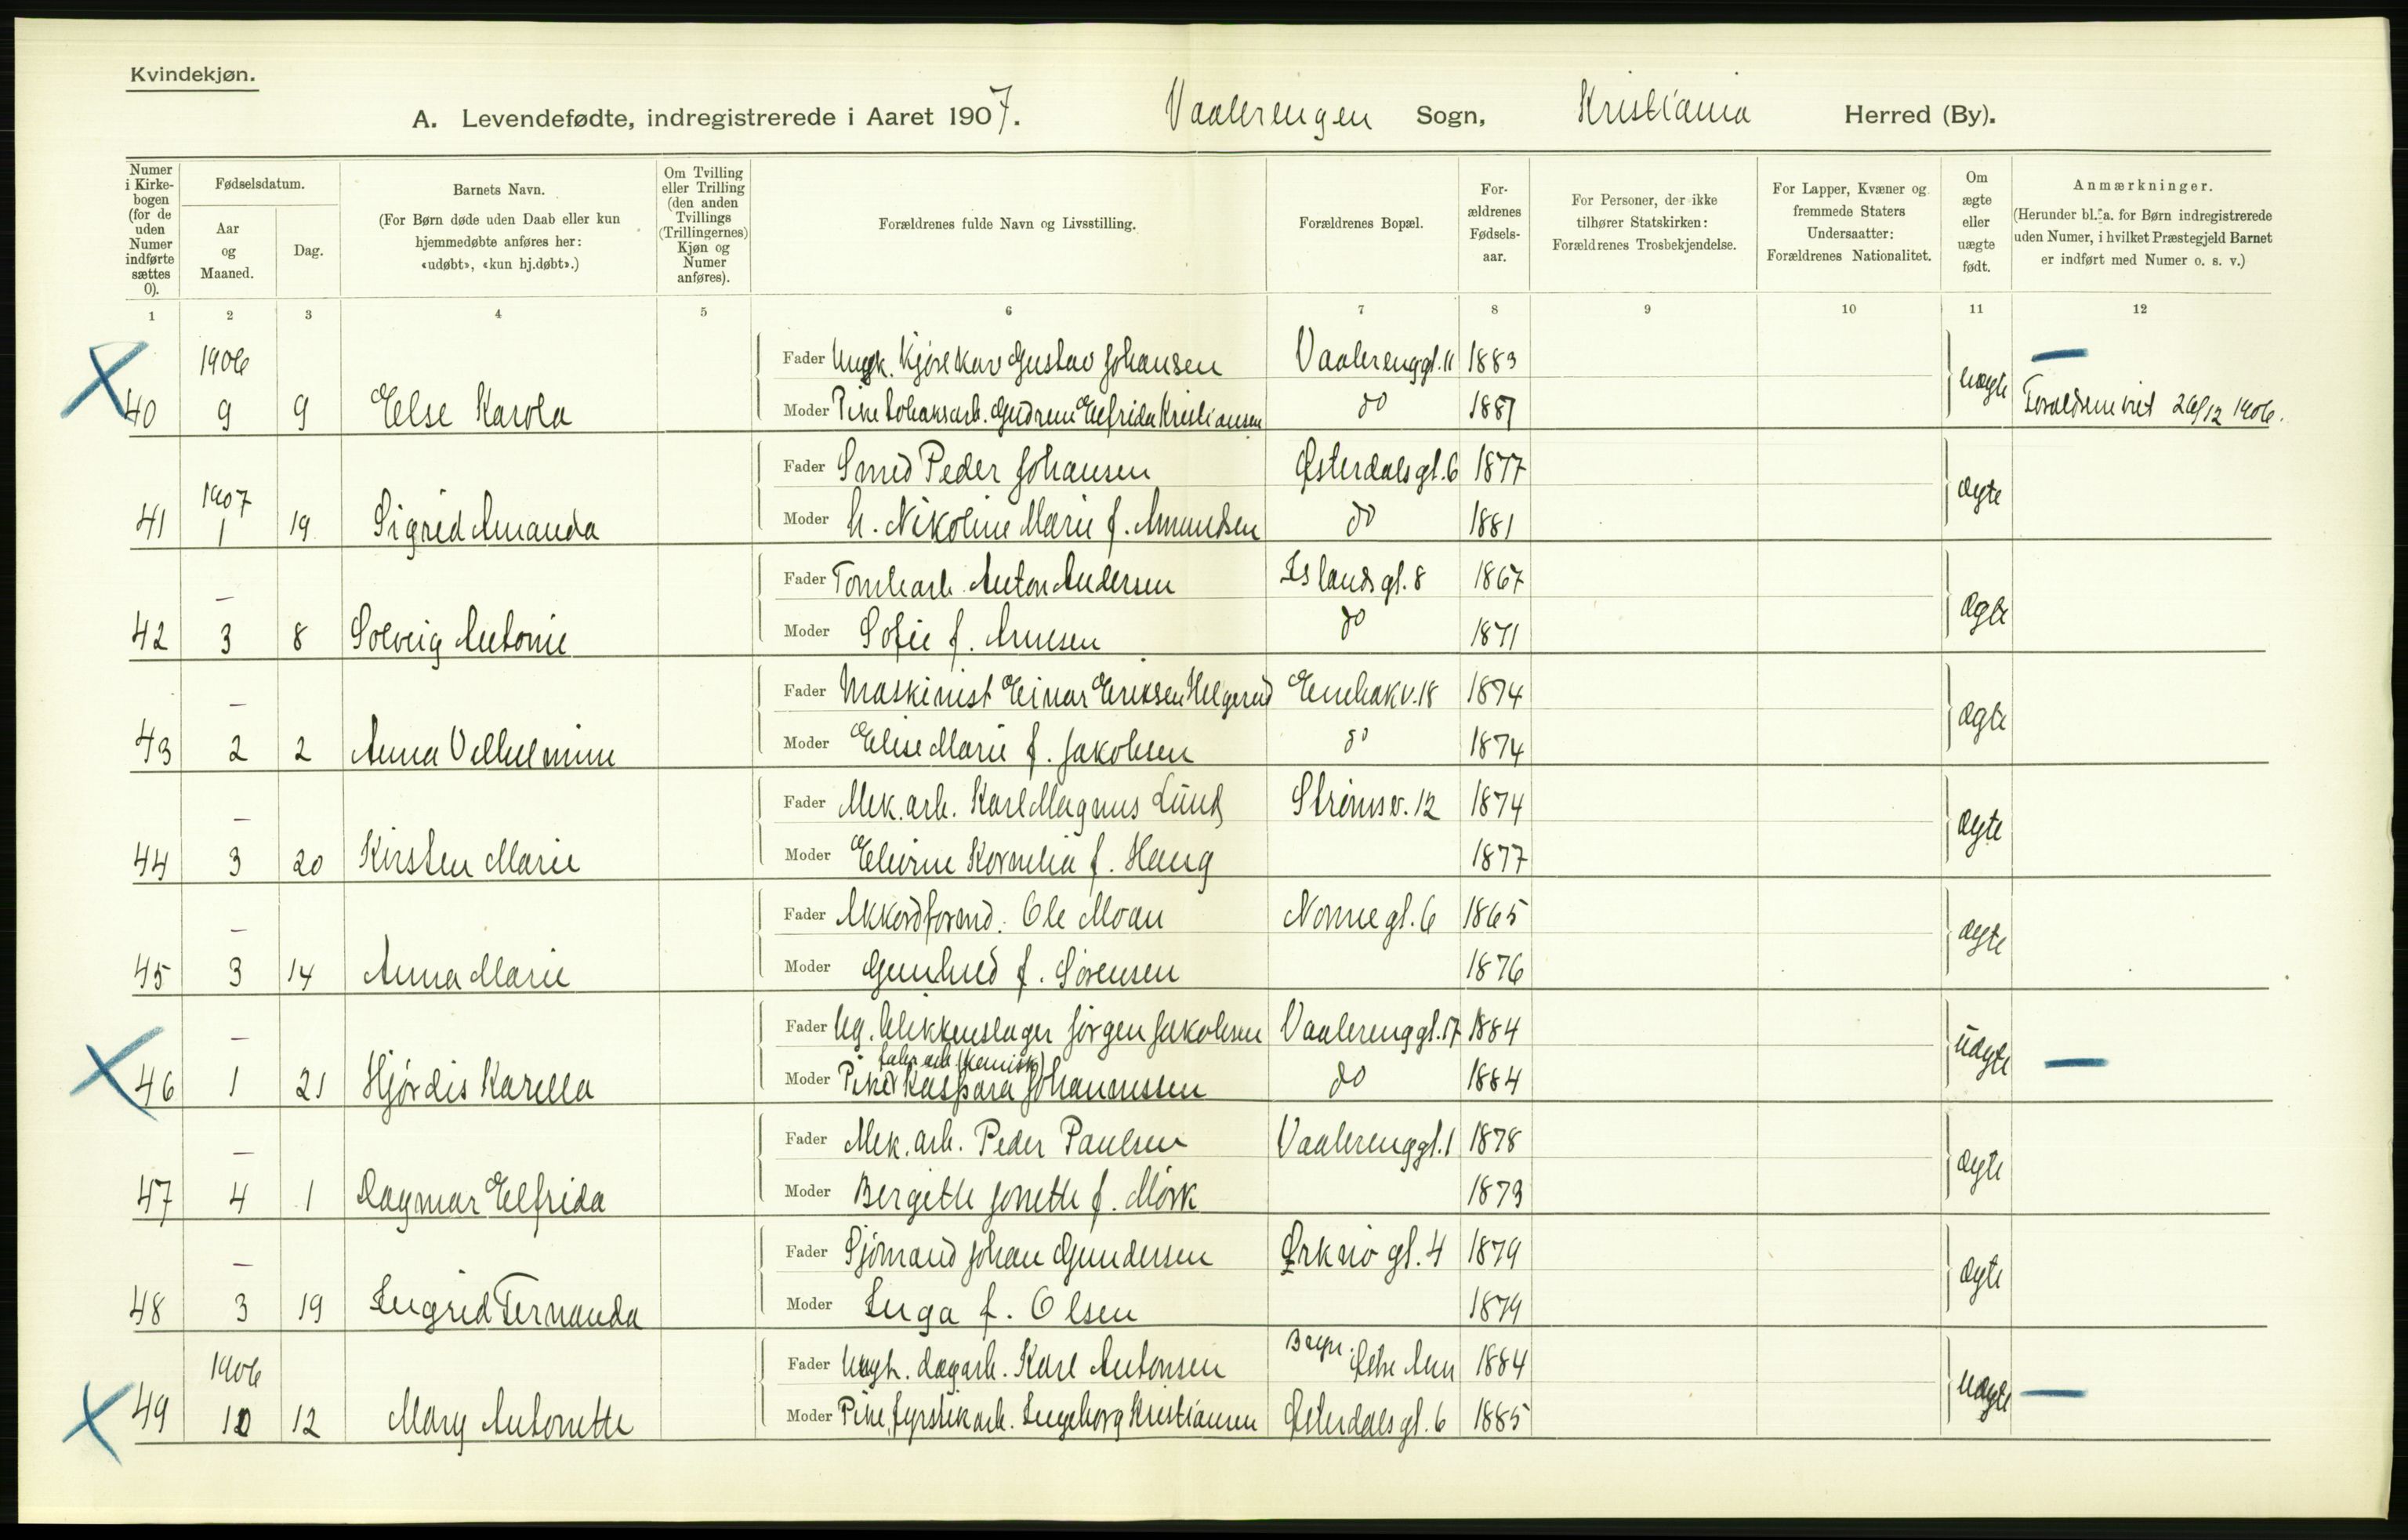 Kvindekjøn.
A. Levendefødte, indregistrerede i Aaret 1907. Vaalerengen Sogn, Kristiania Herred (By).
Numer i Kirkebogen (for de uden Numer indførte sættes 0).
Fødselsdatum.
Aar og Maaned.
Dag.
Barnets Navn.
(For Børn døde uden Daab eller kun hjemmedøbte anføres her: «udøbt», «kun hj.døbt».)
Om Tvilling eller Trilling (den anden Tvillings (Trillingernes) Kjøn og Numer anføres).
Forældrenes fulde Navn og Livsstilling.
Forældrenes Bopæl.
Forældrenes Fødselsaar.
For Personer, der ikke tilhører Statskirken: Forældrenes Trosbekjendelse.
For Lapper, Kvæner og fremmede Staters Undersaatter: Forældrenes Nationalitet.
Om ægte eller uægte født.
Anmærkninger.
(Herunder bl. a. for Børn indregistrerede uden Numer, i hvilket Præstegjeld Barnet er indført med Numer o. s. v.)
1 2 3 4 5 6 7 8 9 10 11 12
1906 Fader Ungk. Kjørekar Gustav Johansen Vaalerenggt. 11 1883 uægte —
40 9 9 Else Karola Moder Pike Tobaksarb. Gudrun Elfrida Kristiansen do 1887 Forældrene viet 26/12 1906.
Fader Smed Peder Johansen Østerdalsgt. 6 1877 ægte
41 1907 1 19 Sigrid Amanda Moder h. Nikoline Marie f. Amundsen do 1881
— Fader Tomtearb. Anton Andersen Islandsgt. 8 1867 ægte
42 3 8 Solveig Antonie Moder Sofie f. Arnesen do 1871
— Fader Maskinist Einar Eriksen Helgerud Enebakv. 18 1874 ægte
43 2 2 Anna Vilhelmine Moder Elise Marie f. Jakobsen do 1874
— Fader Mek. arb. Karl Magnus Lund Strømsv. 12 1874 ægte
44 3 20 Kirsten Marie Moder Elvine Kornelia f. Haug 1877
— Fader Akkordformd. Ole Moan Nornegt. 6 1865 ægte
45 3 14 Anna Marie Moder Gunhild f. Sørensen 1876
— Fader Ug. Blikkenslager Jørgen Jakobsen Vaalerenggt. 17 1884 uægte —
46 1 21 Hjørdis Karella Moder Pike Kaspara Johannessen do 1884
— Fader Mek. arb. Peder Paulsen Vaalerenggt. 1 1878 ægte
47 4 1 Dagmar Elfrida Moder Bergitte Jonette f. Mørk 1873
— Fader Sjømand Johan Gundersen Ørknøgt. 4 1879 ægte
48 3 19 Ingrid Fernanda Moder Inga f. Olsen 1879
1906 Fader Ungk. dagarb. Karl Antonsen 1884 uægte —
49 12 Mary Antonette Moder Pike, fyrstikarb. Ingeborg Kristiansen Østerdalsgt. 6 1885